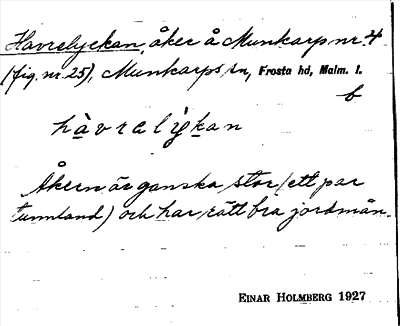 Havrelyckan, åker å Munkarp nr. 4
(fig. nr. 25), Munkarps sn, Frosta hd, Malm. l.
b
hàvralýkan
Åkern är ganska stor (ett par
tunnland) och har rätt bra jordmån.
EINAR HOLMBERG 1927